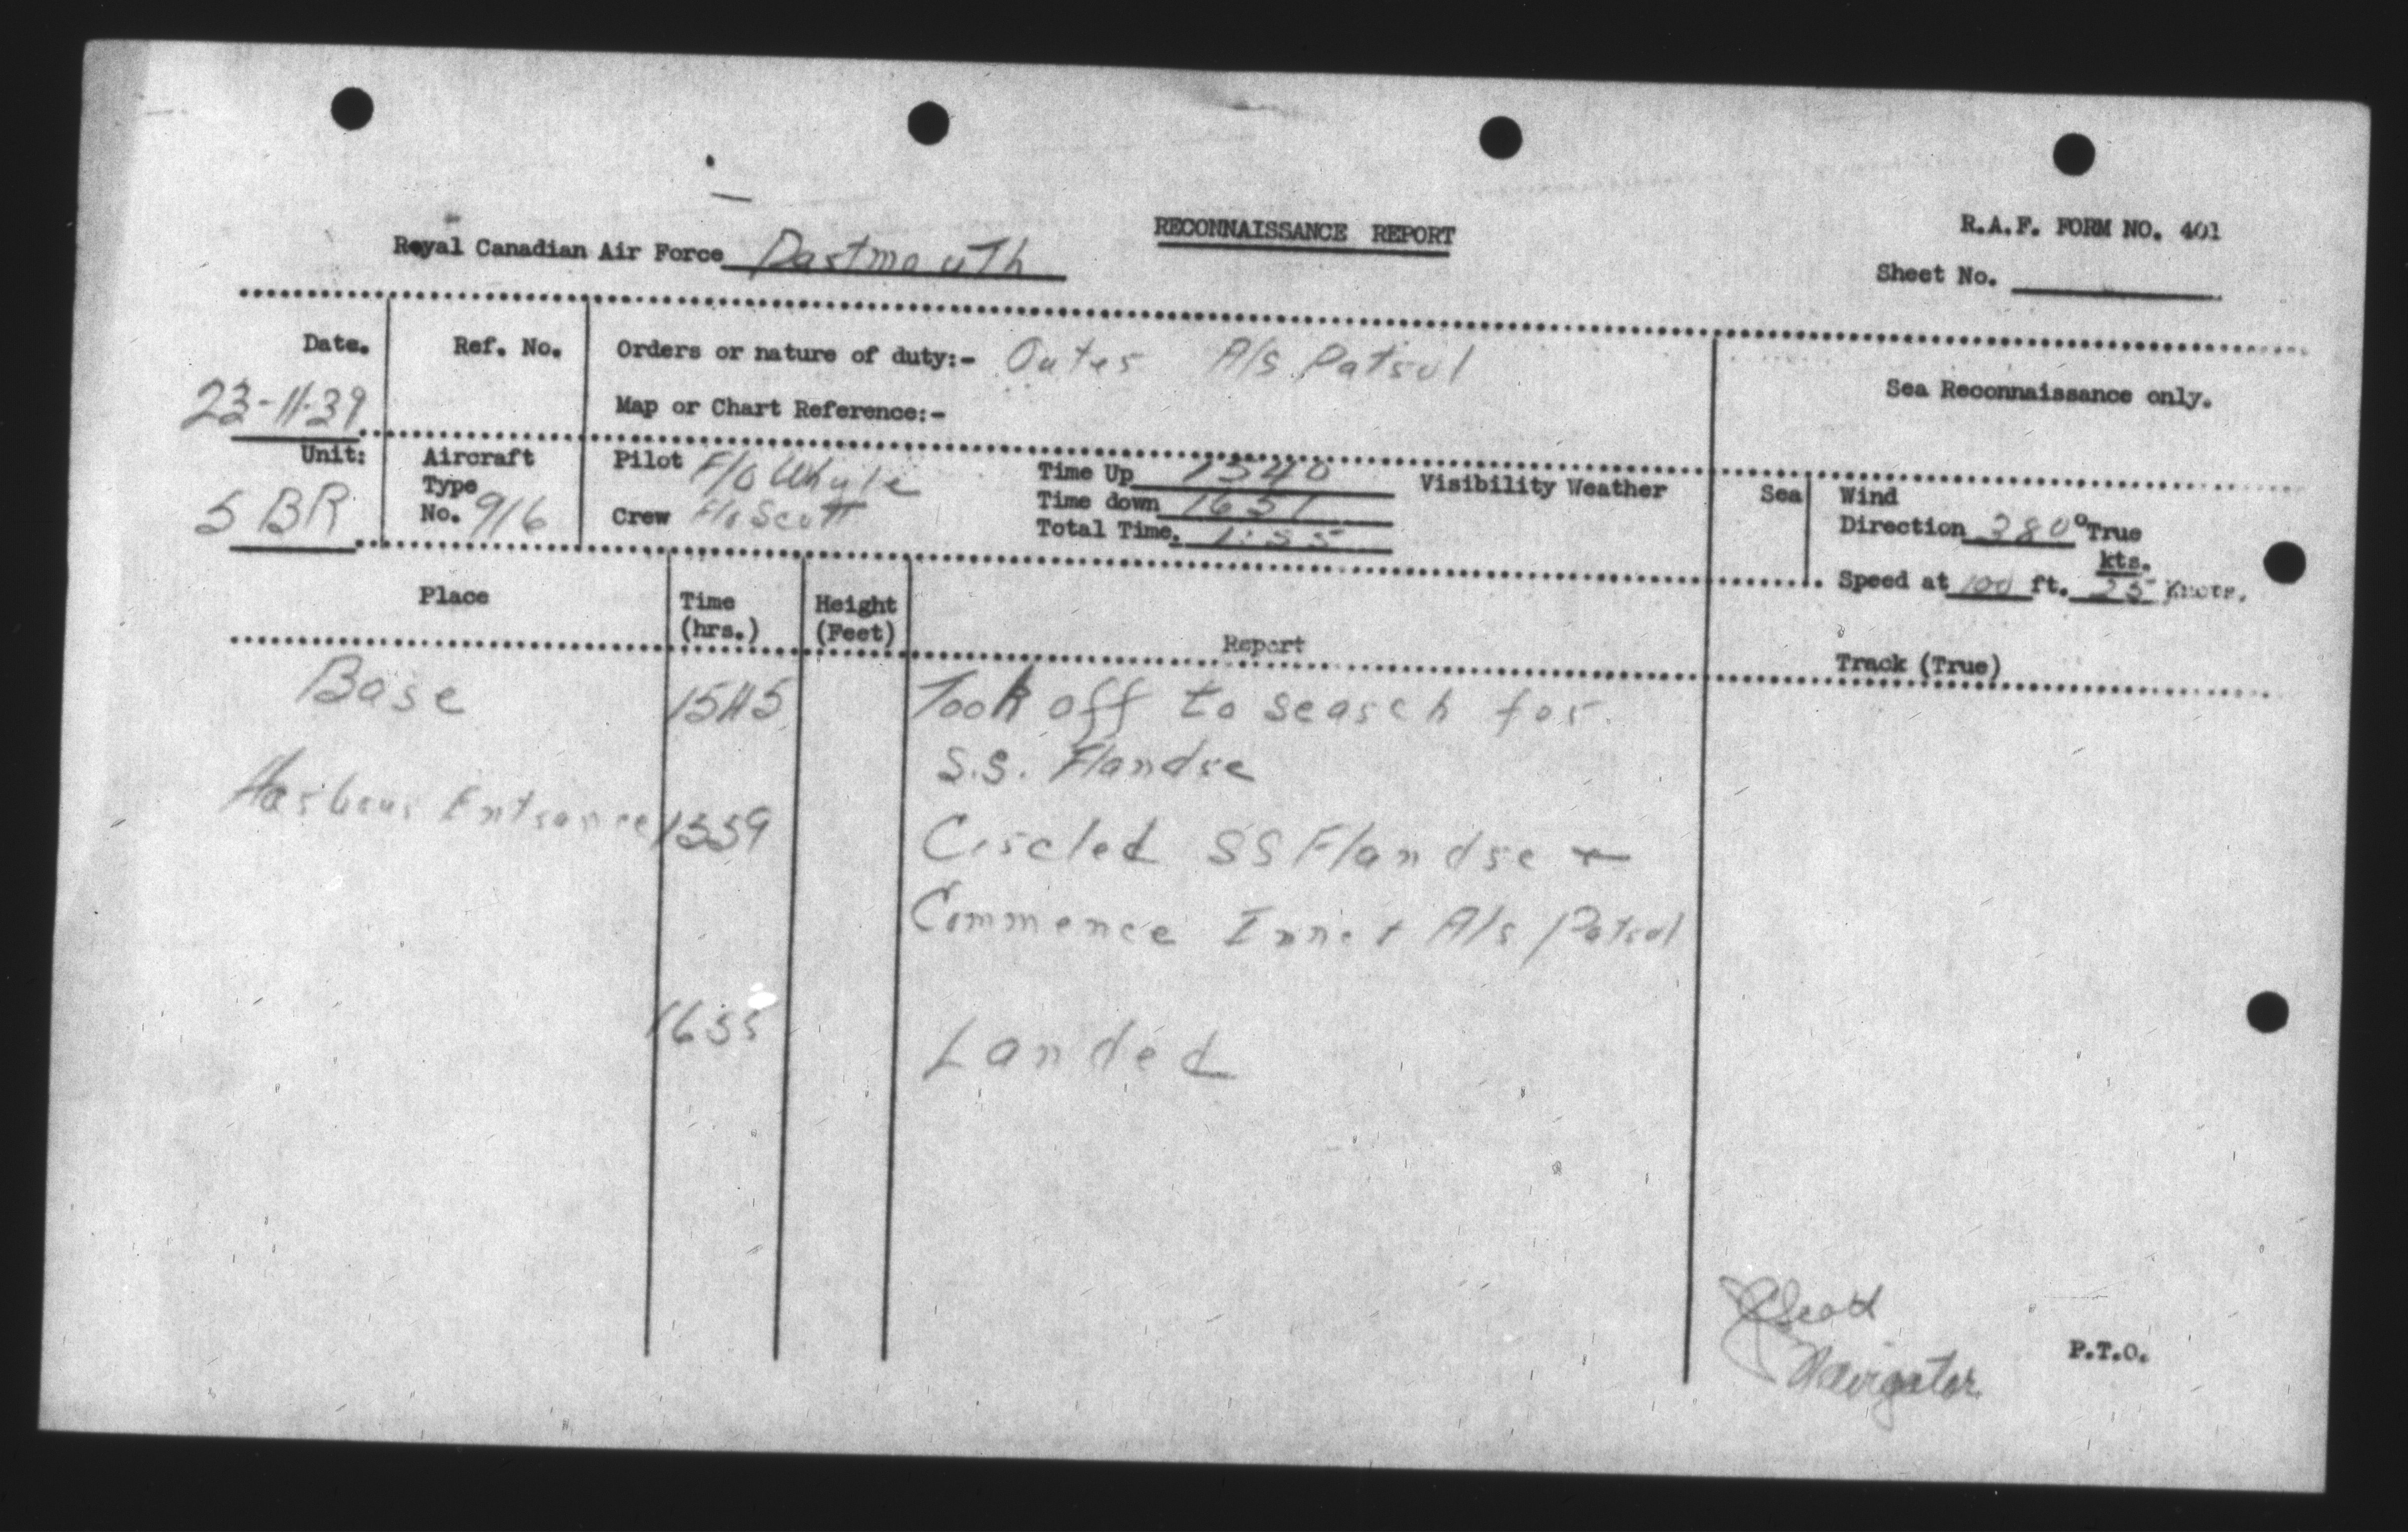 RECONNAISSANCE REPORT
R.A.F. FORM NO. 401
Royal Canadian Air Force Dartmouth
Sheet No.
Date. 23-11-39
Ref. No.
Orders or nature of duty:- Outer A/S Patrol
Map or Chart Reference:-
Sea Reconnaissance only.
Unit: 5 BR
Aircraft
Type
No. 916
Pilot F/O Whyte
Crew F/O Scott
Time Up 1540
Time down 1651
Total Time.
Visibility Weather
Sea
Wind
Direction 280° True
kts.
Speed at 100 ft. 25 Knots.
Place
Time
(hrs.)
Height
(Feet)
Report
Track (True)
Base 1545 Took off to search for
S.S. Flandre
Harbour Entrance 1559 Circled SS Flandre +
Commence Inner A/S Patrol
1655 Landed
Navigator
P.T.O.